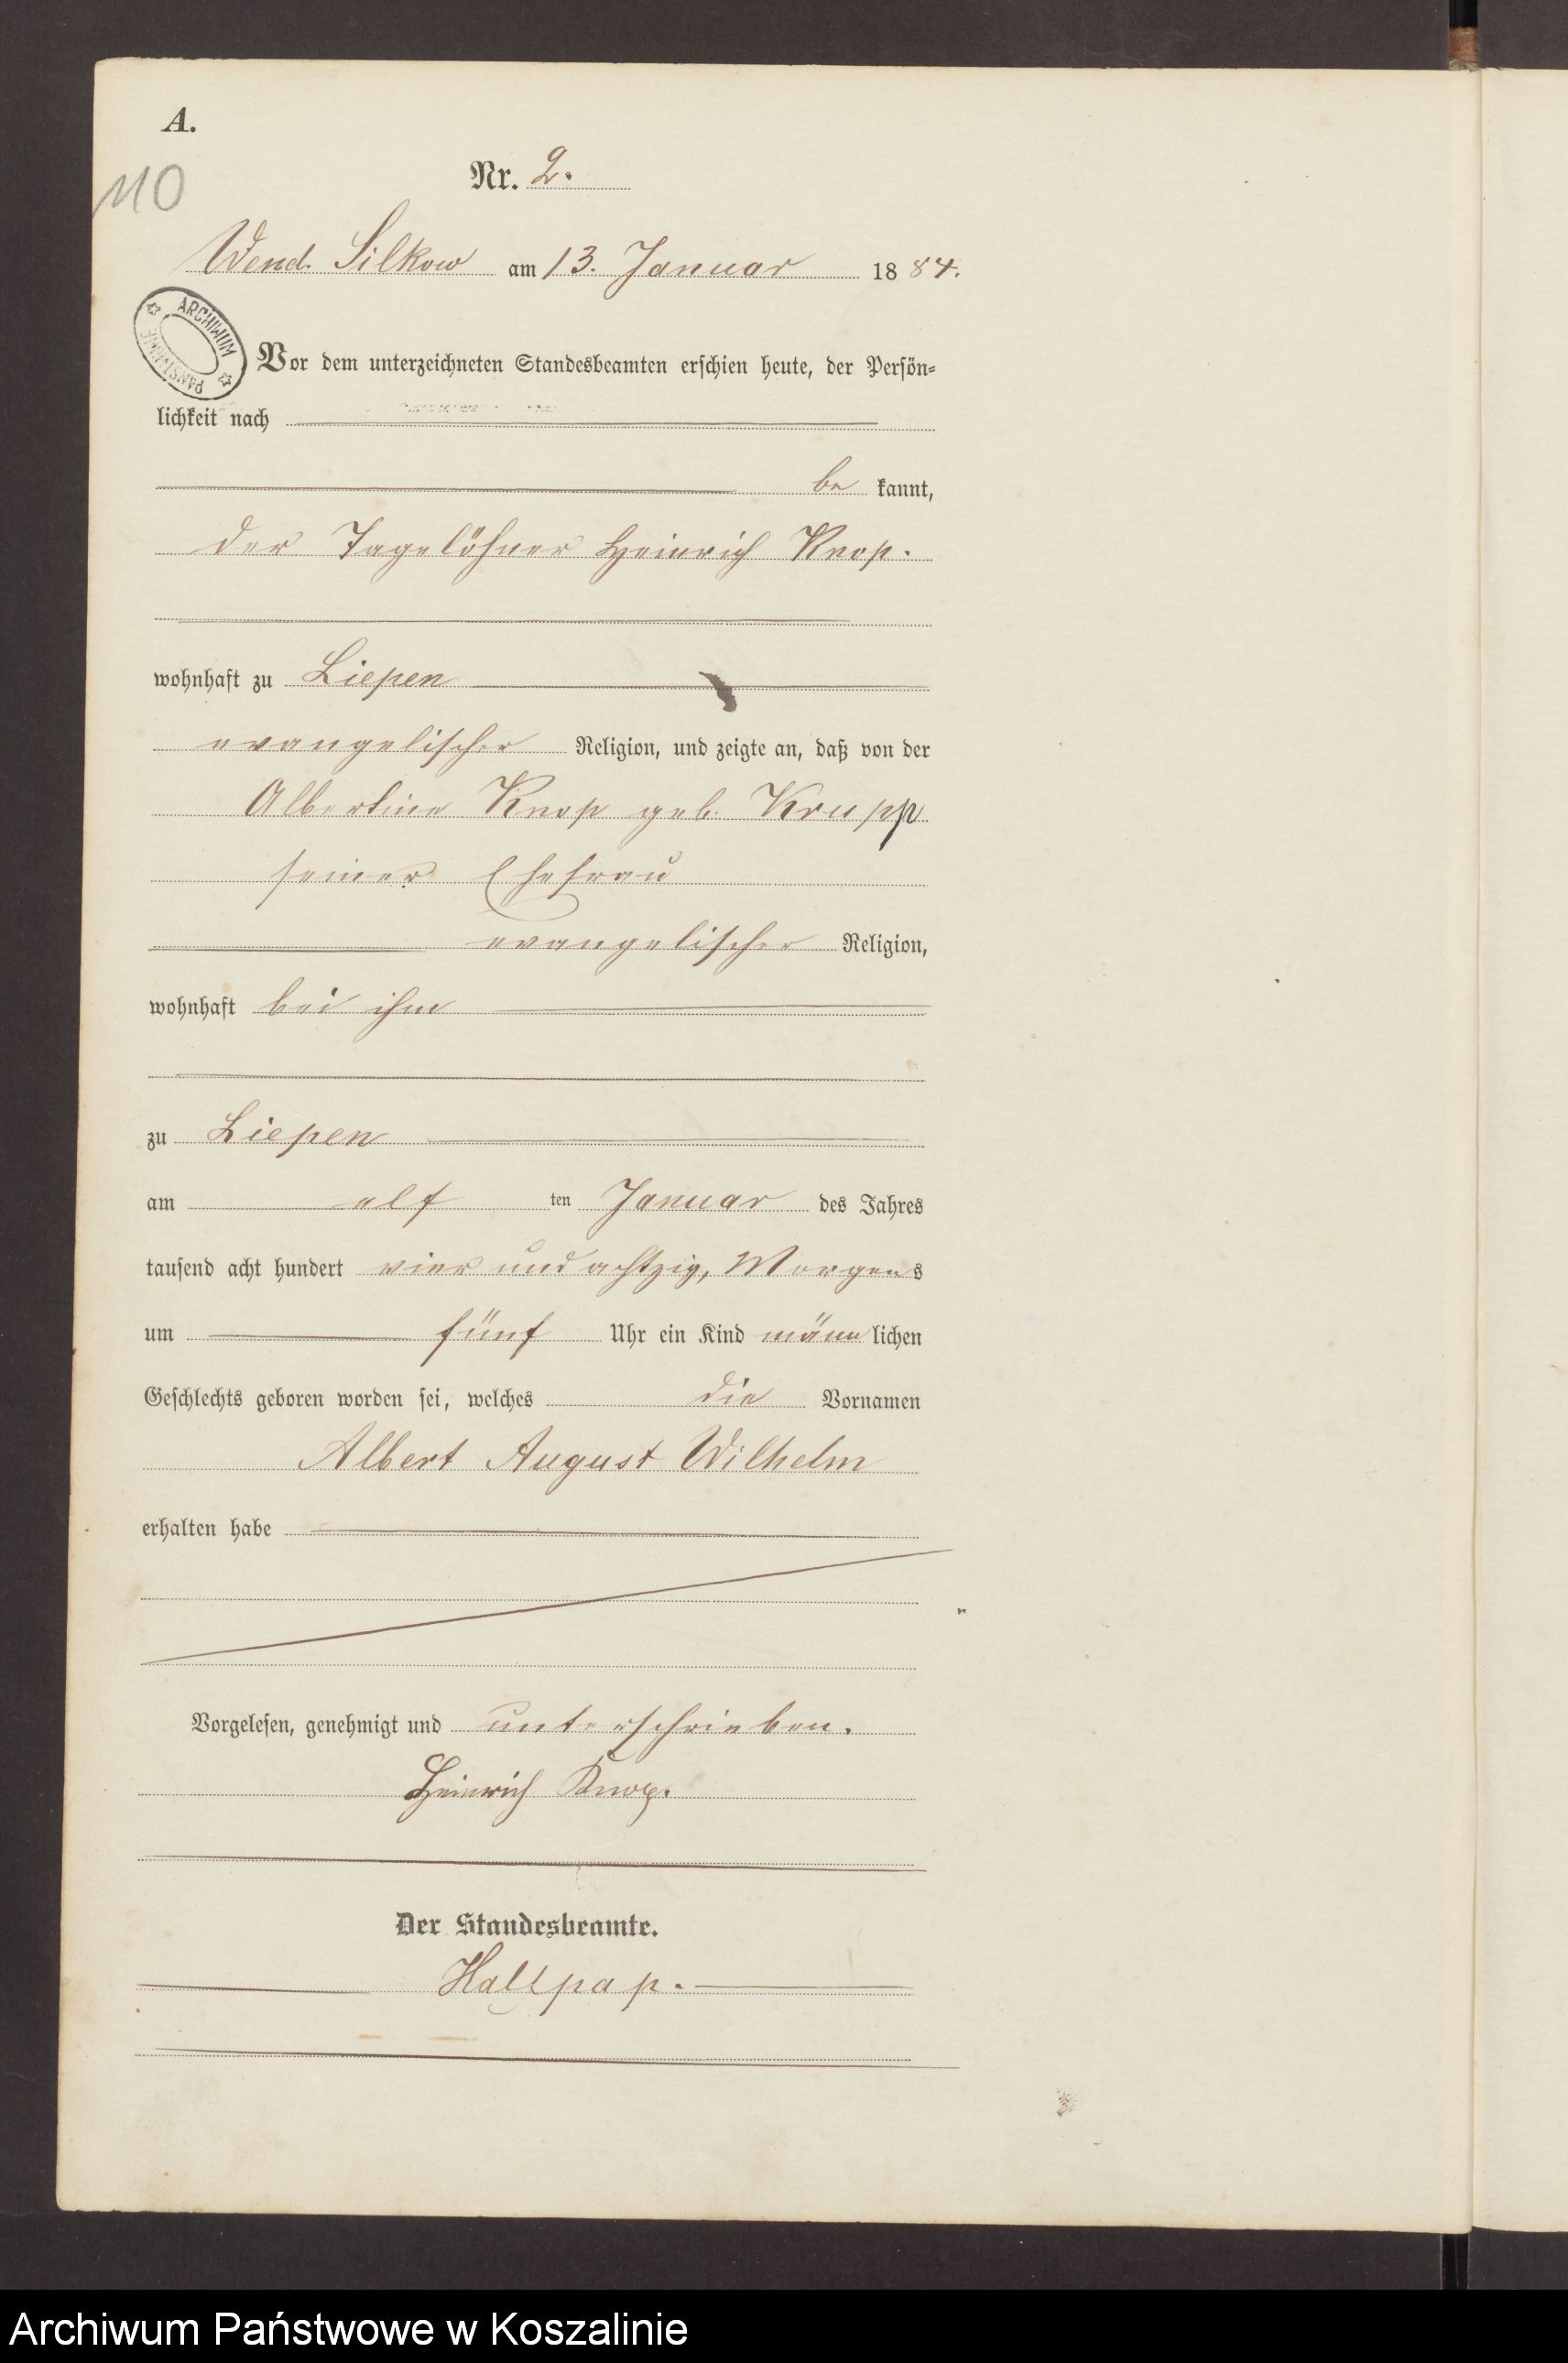 A.
110
Nr. 2.
Wend. Silkow am 13. Januar 1884.
ARCHIWUM PAŃSTWOWE
Vor dem unterzeichneten Standesbeamten erschien heute, der Persön=
lichkeit nach
be kannt,
der Tagelöhner Heinrich Knop.
wohnhaft zu Liepen
evangelischer Religion, und zeigte an, daß von der
Albertine Knop geb. Krupp
seiner Ehefrau
evangelischer Religion,
wohnhaft bei ihm
zu Liepen
am elf ten Januar des Jahres
tausend acht hundert vier und achtzig, Morgens
um fünf Uhr ein Kind männlichen
Geschlechts geboren worden sei, welches die Vornamen
Albert August Wilhelm
erhalten habe
Vorgelesen, genehmigt und unterschrieben.
Heinrich Knop.
Der Standesbeamte.
Archiwum Państwowe w Koszalinie